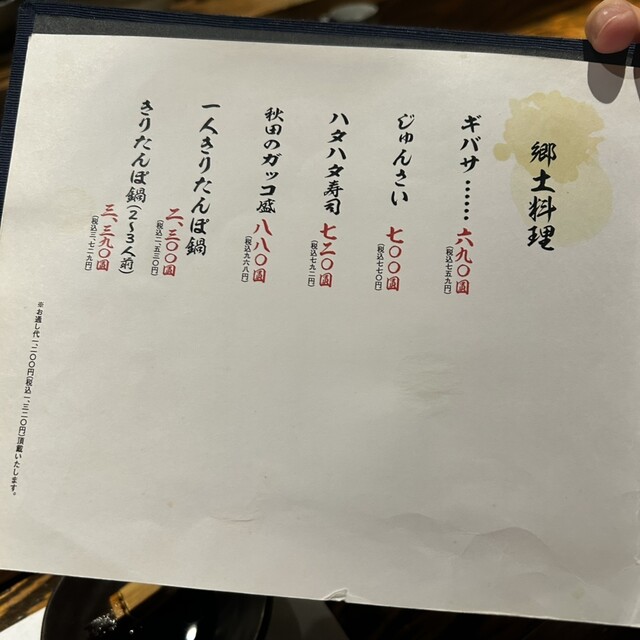 郷土料理
ギバサ……六九〇圓
(税込七五九円)
じゅんさい 七〇〇圓
(税込七七〇円)
ハタハタ寿司 七二〇圓
(税込七九二円)
秋田のガッコ盛 八八〇圓
(税込九六八円)
一人きりたんぽ鍋 二、三〇〇圓
(税込二、五三〇円)
きりたんぽ鍋(2〜3人前) 三、三九〇圓
(税込三、七二九円)
※お通し代一、二〇〇円(税込一、三二〇円)頂戴いたします。